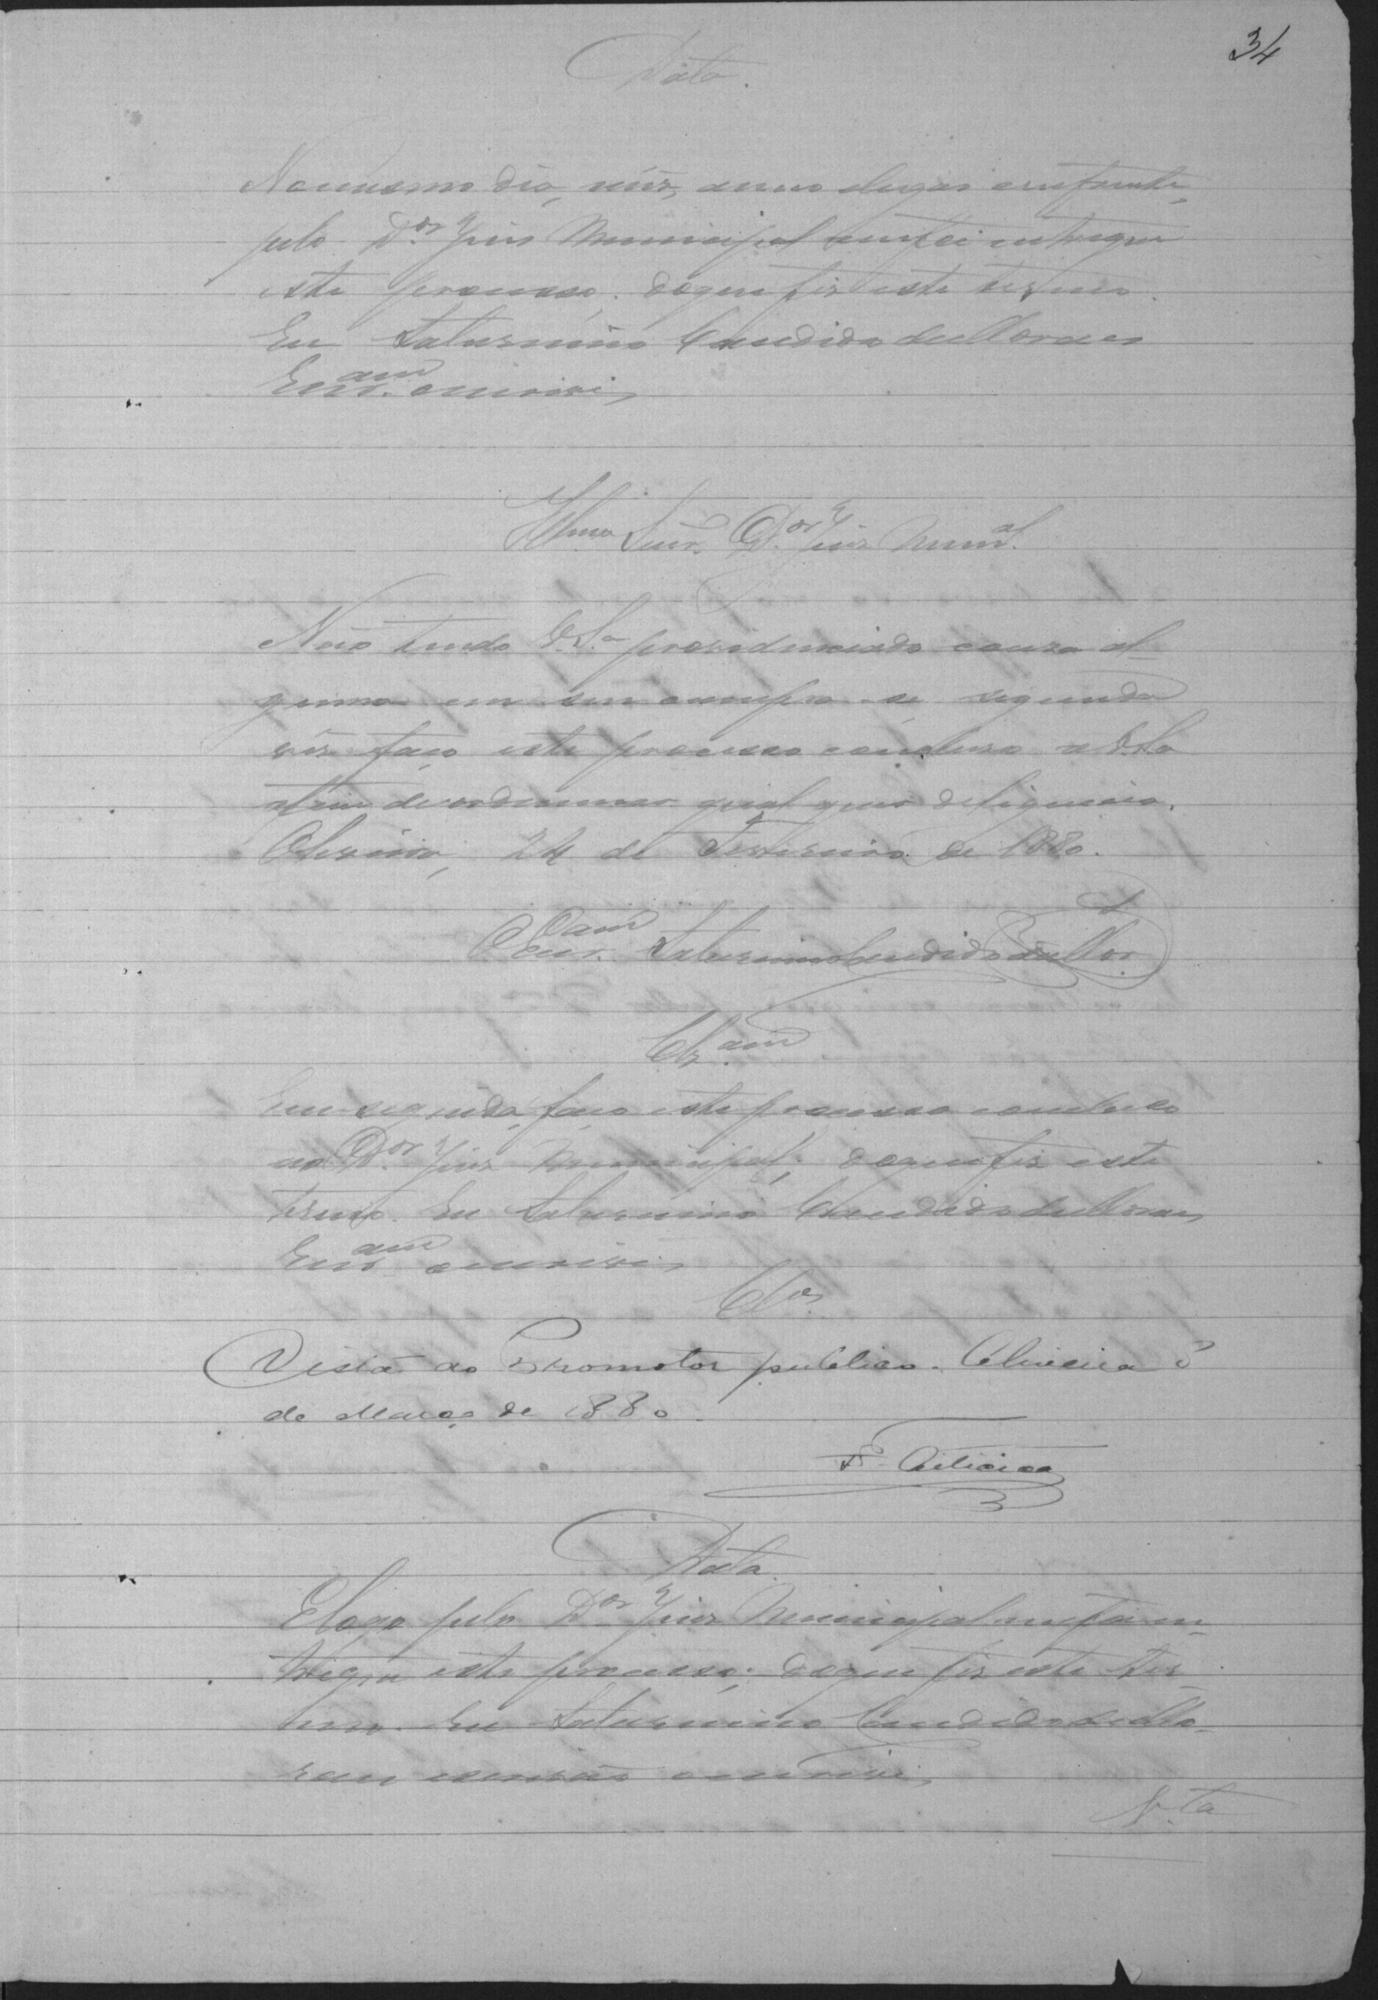 34
Data.
No mesmo dia, mês, anno e lugar
pelo D.or Juiz Municipal me foi entregue
este processo, do que fiz este termo.
Eu Saturnino Candido de Moraes
Escr.am o escrevi,
Illmo Senr. D.or Juiz Mun.al
Não tendo V.Sa providenciado couza al-
guma em seo cumpra-se segunda
vês faço este processo concluso a V.Sa
afim de ordennar qual quer deligencia.
Oliveira, 24 de Fevereiro de 1880.
O Escr.am Saturnino Candido de Mor.
Clz.am
Em seguida, faço este processo concluso
ao D.or Juiz Municipal; do que fiz este
termo. Eu Saturnino Candido de Moraes,
Escr.am o escrevi,
Clos.
Vista ao Promotor publico. Oliveira 3
de Março de 1880.
Data.
E logo pelo D.or Juiz Municipal me foi en-
tregue este processo; do que fiz este ter-
mo. Eu Saturnino Candido de Mo-
raes escrivão o escrevi,
V.ta